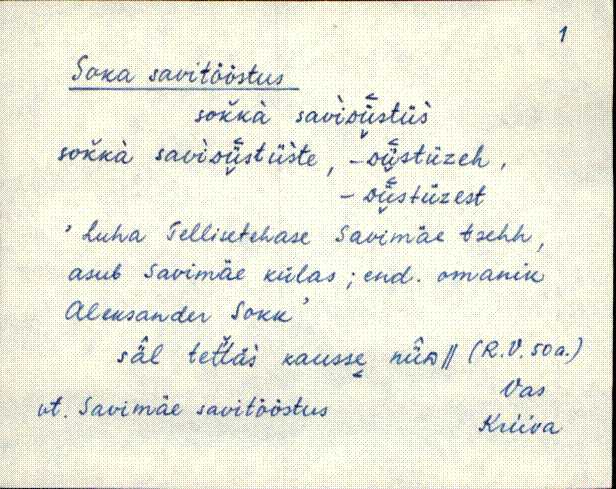 1
Soka savitööstus
sok̆kà savìòǖstüs̀
sok̆kà savìòǖstüs̀te, -òǖstüzeh,
- òǖstüzest
'Luha Tellisetehase Savimäe tsehh,
asub Savimäe külas; end. omanik
Aleksander Sokk'
sä̂l tet̆täs̀ kausse nüɪ̂ʀ || (R.V. 50a.)
Vas
vt. Savimäe savitööstus
Kriiva